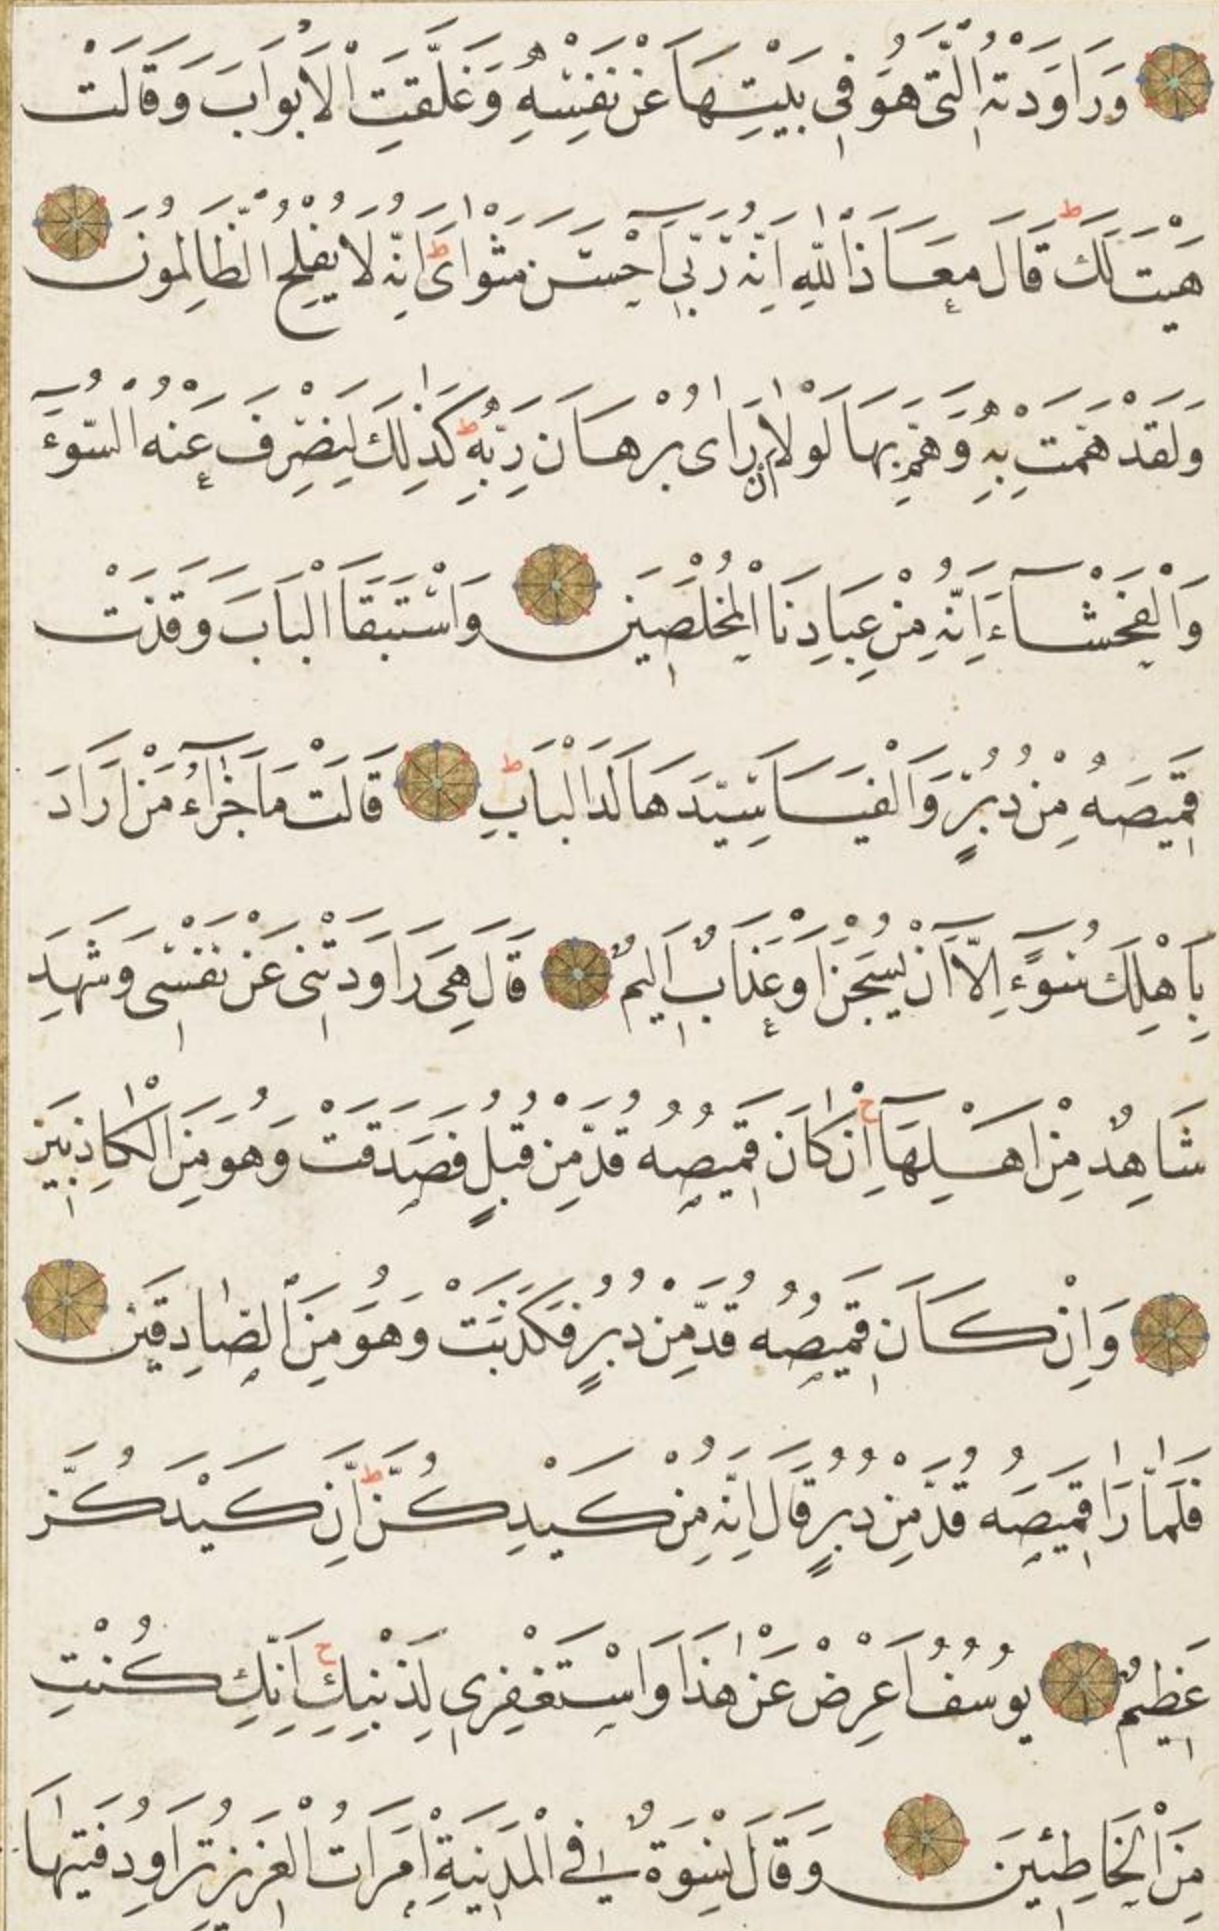 وَرَاوَدَتْهُ الَّتِي هُوَ فِي بَيْتِهَا عَنْ نَفْسِهِ وَغَلَّقَتِ الْاَبْوَابَ وَقَالَتْ
هَيْتَ لَكَ ط قَالَ مَعَاذَ اللّٰهِ اِنَّهُ رَبِّي اَحْسَنَ مَثْوَايَ ط اِنَّهُ لَا يُفْلِحُ الظَّالِمُونَ
وَلَقَدْ هَمَّتْ بِهِ وَهَمَّ بِهَا لَوْلَا اَنْ رَاٰى بُرْهَانَ رَبِّهِ ط كَذٰلِكَ لِنَصْرِفَ عَنْهُ السُّوءَ
وَالْفَحْشَاءَ اِنَّهُ مِنْ عِبَادِنَا الْمُخْلَصِينَ وَاسْتَبَقَا الْبَابَ وَقَدَّتْ
قَمِيصَهُ مِنْ دُبُرٍ وَاَلْفَيَا سَيِّدَهَا لَدَا الْبَابِ ط قَالَتْ مَا جَزَاءُ مَنْ اَرَادَ
بِاَهْلِكَ سُوءًا اِلَّا اَنْ يُسْجَنَ اَوْ عَذَابٌ اَلِيمٌ قَالَ هِيَ رَاوَدَتْنِي عَنْ نَفْسِي وَشَهِدَ
شَاهِدٌ مِنْ اَهْلِهَا ج اِنْ كَانَ قَمِيصُهُ قُدَّ مِنْ قُبُلٍ فَصَدَقَتْ وَهُوَ مِنَ الْكَاذِبِينَ
وَاِنْ كَانَ قَمِيصُهُ قُدَّ مِنْ دُبُرٍ فَكَذَبَتْ وَهُوَ مِنَ الصَّادِقِينَ
فَلَمَّا رَاٰ قَمِيصَهُ قُدَّ مِنْ دُبُرٍ قَالَ اِنَّهُ مِنْ كَيْدِكُنَّ ط اِنَّ كَيْدَكُنَّ
عَظِيمٌ يُوسُفُ اَعْرِضْ عَنْ هٰذَا وَاسْتَغْفِرِي لِذَنْبِكِ ج اِنَّكِ كُنْتِ
مِنَ الْخَاطِئِينَ وَقَالَ نِسْوَةٌ فِي الْمَدِينَةِ امْرَاَتُ الْعَزِيزِ تُرَاوِدُ فَتٰيهَا